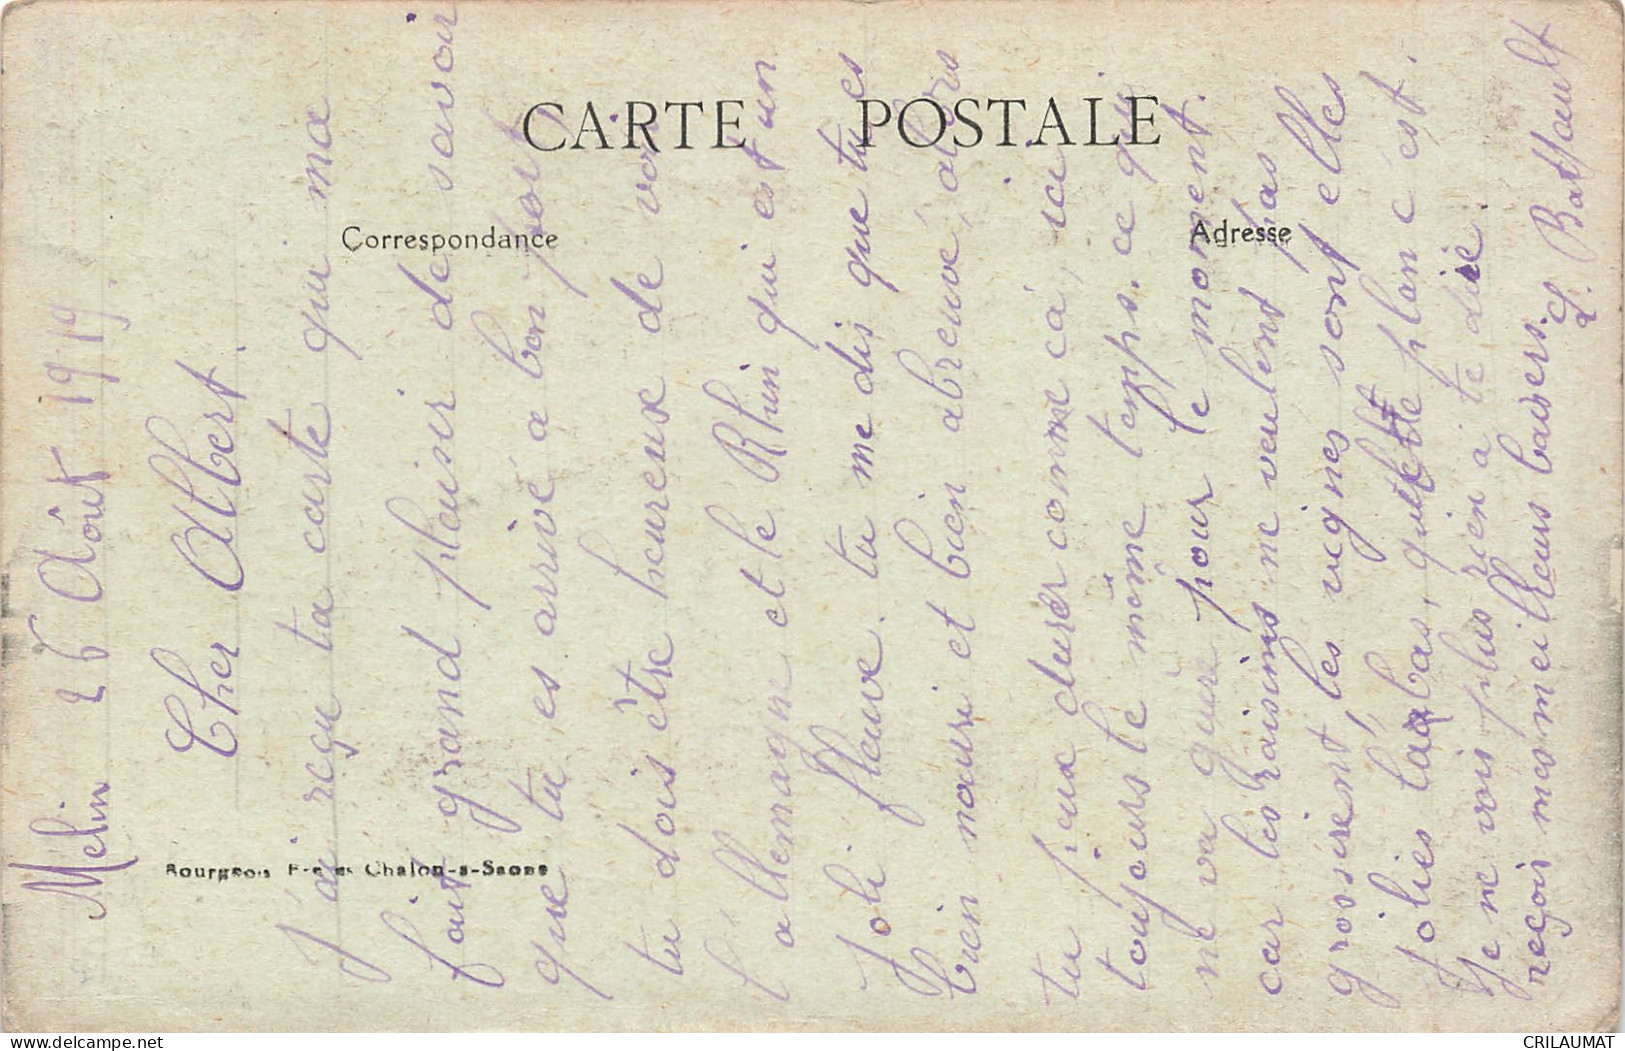 CARTE POSTALE
Correspondance
Adresse
Bourgeois Frères Chalon-s-Saone
Melin 26 Août 1919.
Cher Albert.
J'ai reçu ta carte qui ma
fait grand plaisir de savoir
que tu es arrivé a bon port
tu dois être heureuse de voir
l'allemagne et le Rhin qui est un
joli fleuve. tu me dis que tu es
bien nouri et bien abreuvé, alors
tu peux durer comme cà, ici
toujours le même temps. ce qu
ne va guère pour le moment.
car les raisins ne veulent pas
grossirent, les vignes sont elles
jolies labas, quelle plan c'est.
Je ne vois plus rien a te dire.
reçois mes meilleurs baisers.
L. Battault
CRILAUMAT